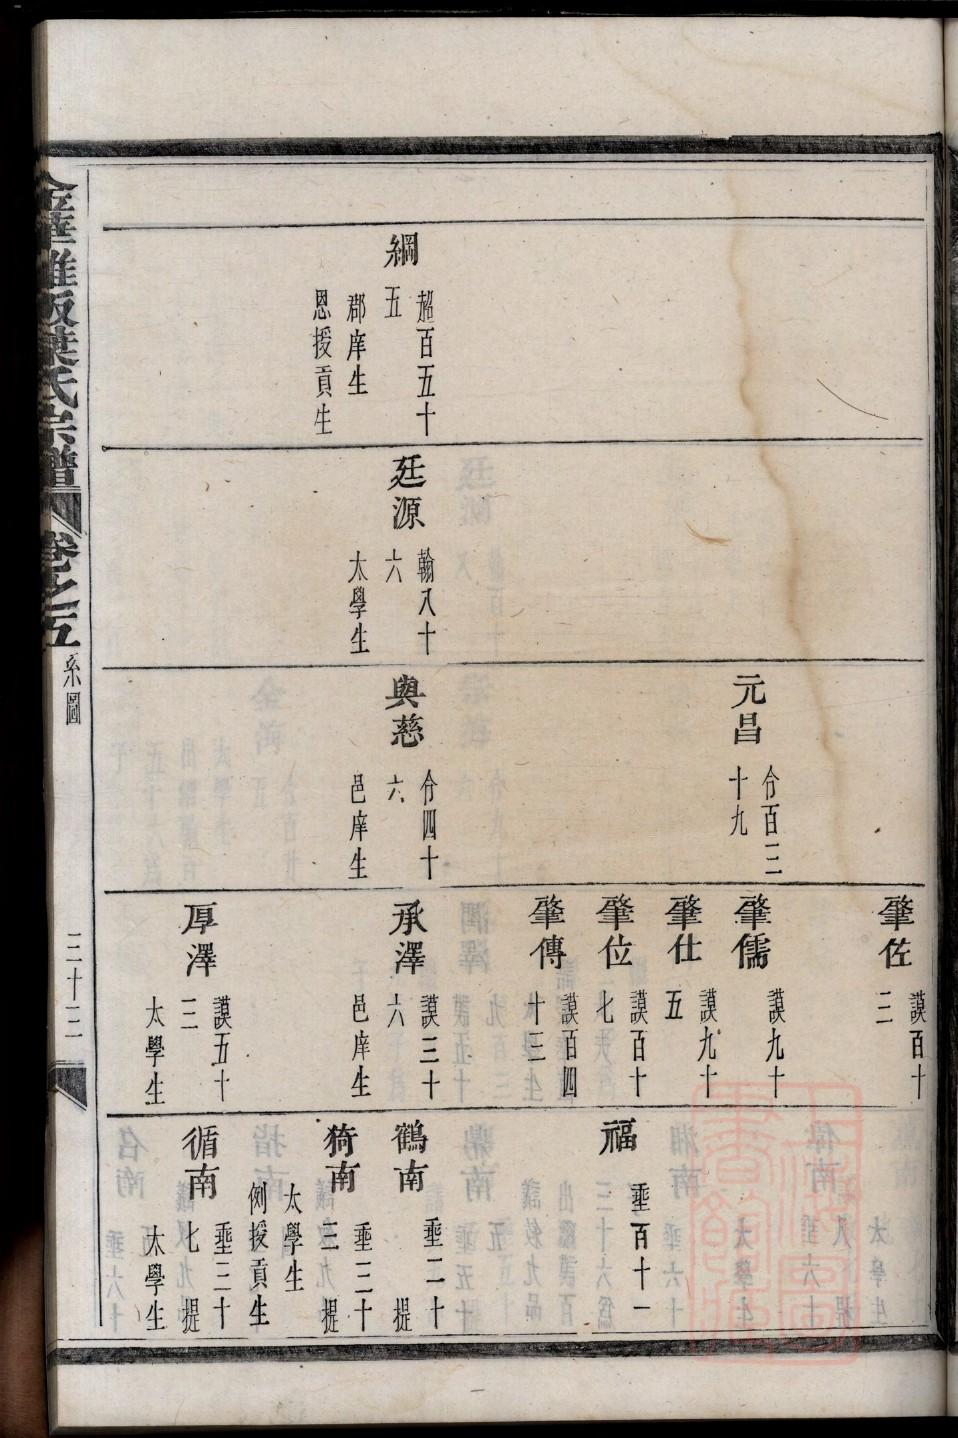 綱
超百五十
五
郡庠生
恩授貢生
廷源
翰八十
六
太學生
元昌
介百三
十九
與慈
介四十
六
邑庠生
肇佐
謨百十
二
肇儒
謨九十
肇仕
謨九十
五
肇位
謨百十
七
肇傳
謨百四
十三
承澤
謨三十
六
邑庠生
厚澤
謨五十
三
太學生
福
垂百十一
鶴南
垂二十
提
猗南
垂二十
三 提
太學生
例授貢生
循南
垂三十
七 提
太學生
金華雅畈葉氏宗譜
卷之五
系圖
三十三